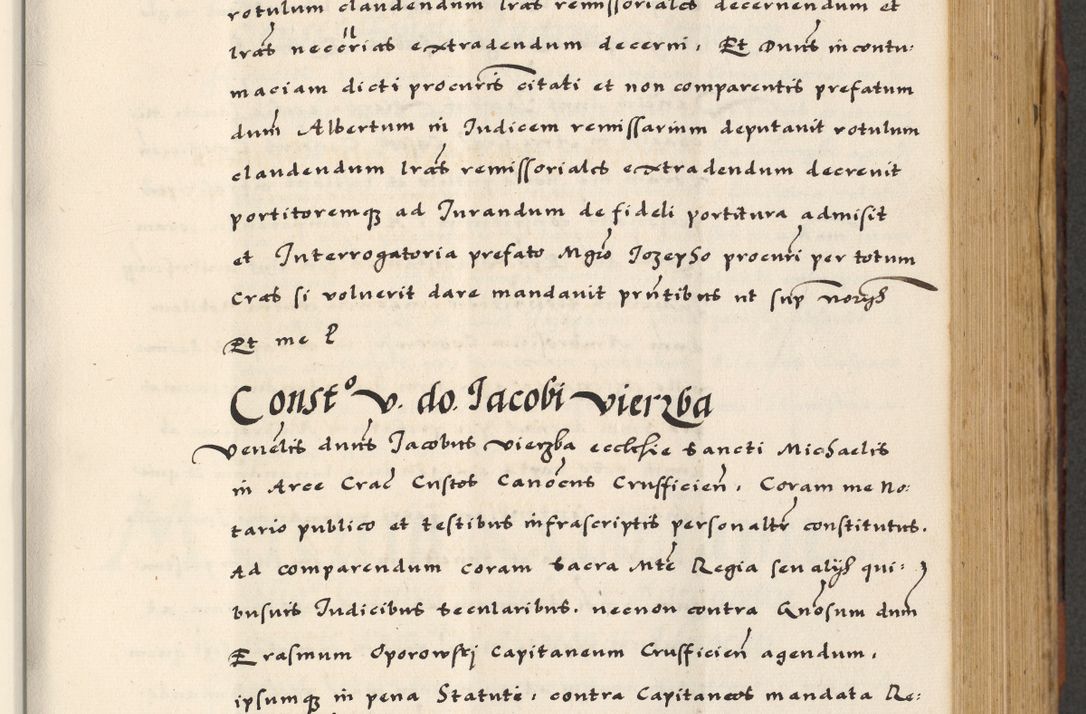 rotulum claudendum lras remissoriales decernendum et
lras necorias extradendum decerni, Et Dnus in contu:
maciam dicti procuris citati et non comparentis prefatum
dum Albertum in Iudicem remissarium deputavit rotulum
claudendum lras remissoriales extradendum decrevit
portitoremq ad Iurandum de fideli portitura admisit
et Interrogatoria prefato Mgro Iozepho procuri per totum
Cras si voluerit dare mandavit pntibus ut sup
Et me
Const° v. do. Iacobi Vierzba
Venelis dnus Iacobus Vierzba ecclesie Sancti Michaelis
in Arce Crac Custos Canocus Crusficien, Coram me No:
tario publico et testibus infrascriptis personaltr constitutus.
Ad comparendum coram Sacra Mte Regia seu alijs qui:
busvis Iudicibus Secularibus. necnon contra Gnosum dum
Erasmum Oporowskj Capitaneum Crusficien agendum,
ipsumq in pena Statuti, contra Capitaneos mandata Re: